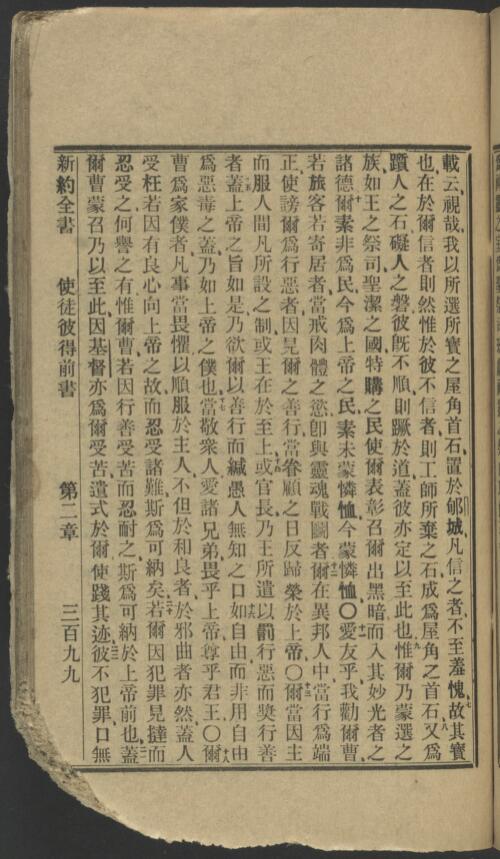 載云視哉我以所選所寶之屋角首石置於郇城凡信之者不至羞愧故其寶
也在於爾信者則然惟於彼不信者則工師所棄之石成爲屋角之首石又爲
躓人之石礙人之磐彼旣不順則蹶於道蓋彼亦定以至此也惟爾乃蒙選之
族如王之祭司聖潔之國特購之民使爾表彰召爾出黑暗而入其妙光者之
諸德爾素非爲民今爲上帝之民素未蒙憐恤今蒙憐恤〇愛友乎我勸爾曹
若旅客若寄居者當戒肉體之慾卽與靈魂戰鬭者爾在異邦人中當行爲端
正使謗爾爲行惡者因見爾之善行當眷顧之日反歸榮於上帝〇爾當因主
而服人間凡所設之制或王在於至上或官長乃王所遣以罰行惡而獎行善
者蓋上帝之旨如是乃欲爾以善行而緘愚人無知之口如自由而非用自由
爲惡毒之蓋乃如上帝之僕也當敬衆人愛諸兄弟畏乎上帝尊乎君王〇爾
曹爲家僕者凡事當畏懼以順服於主人不但於和良者於邪曲者亦然蓋人
受枉若因有良心向上帝之故而忍受諸難斯爲可納矣若爾因犯罪見撻而
忍受之何譽之有惟爾曹若因行善受苦而忍耐之斯爲可納於上帝前也蓋
爾曹蒙召乃以至此因基督亦爲爾受苦遺式於爾使踐其迹彼不犯罪口無
新約全書 使徒彼得前書 第二章 三百九九